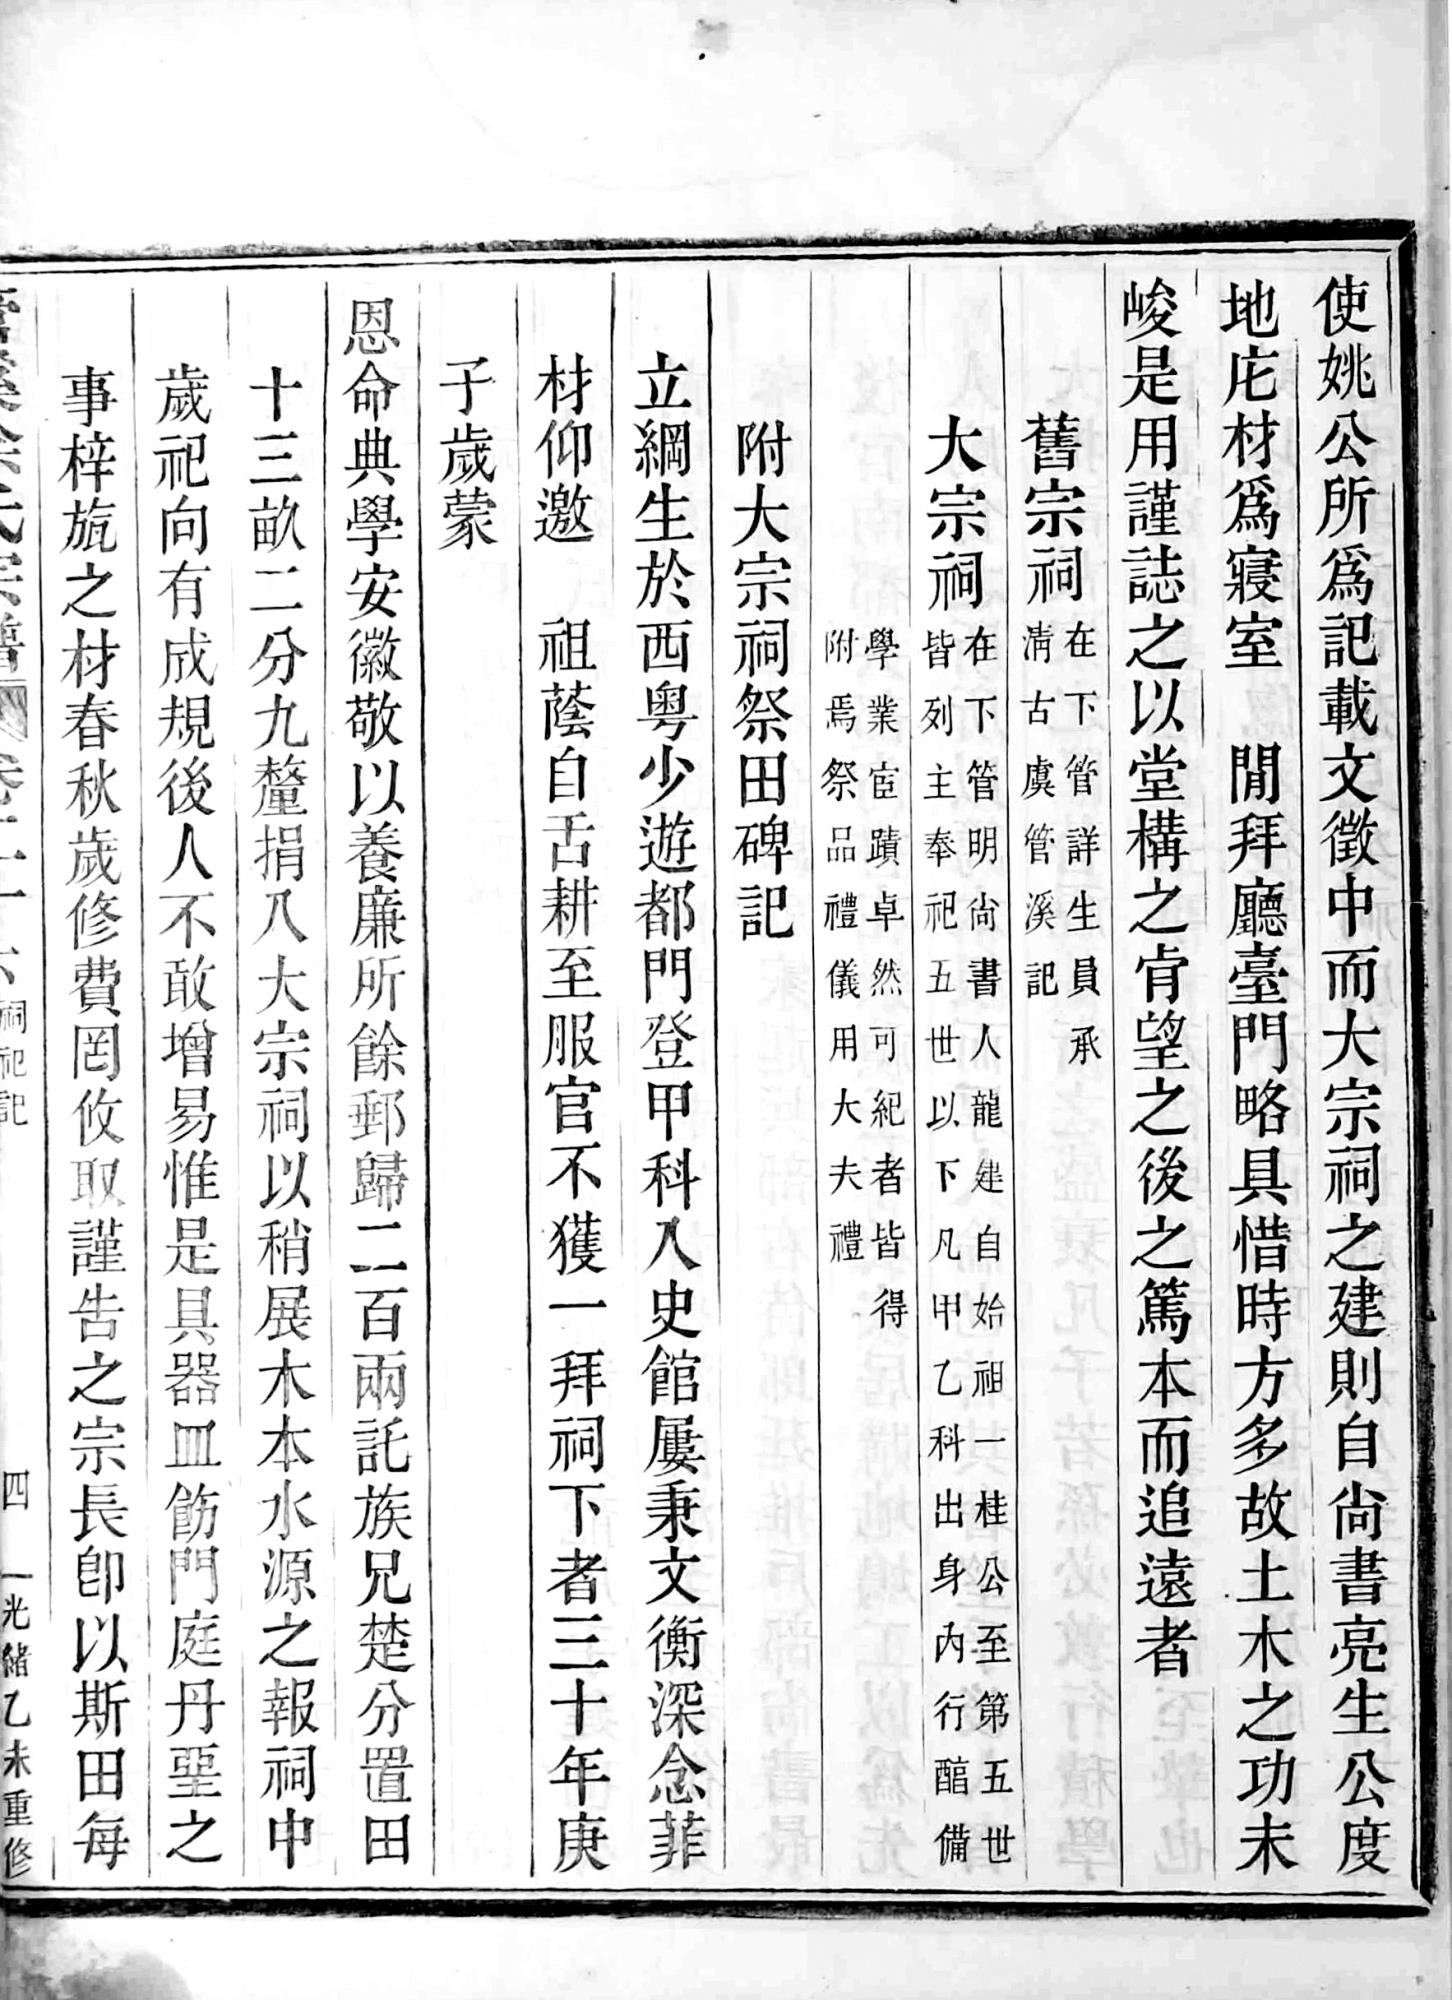 使姚公所爲記載文徵中而大宗祠之建則自尙書亮生公度
地庀材爲寢室　閒拜廳臺門略具惜時方多故土木之功未
峻是用謹誌之以堂構之肯望之後之篤本而追遠者
舊宗祠
在下管詳生員承
淸古虞管溪記
大宗祠
在下管明尙書人龍建自始祖一桂公至第五世
皆列主奉祀五世以下凡甲乙科出身內行醕備
學業宦蹟卓然可紀者皆得
附焉祭品禮儀用大夫禮
附大宗祠祭田碑記
立綱生於西粵少遊都門登甲科入史館屢秉文衡深念菲
材仰邀　祖蔭自舌耕至服官不獲一拜祠下者三十年庚
子歲蒙
恩命典學安徽敬以養廉所餘郵歸二百兩託族兄楚分置田
十三畝二分九釐捐入大宗祠以稍展木本水源之報祠中
歲祀向有成規後人不敢增易惟是具器皿飭門庭丹堊之
事梓旊之材春秋歲修費罔攸取謹告之宗長卽以斯田每
徐氏宗譜　卷二十六　祠祀記　四　光緒乙未重修